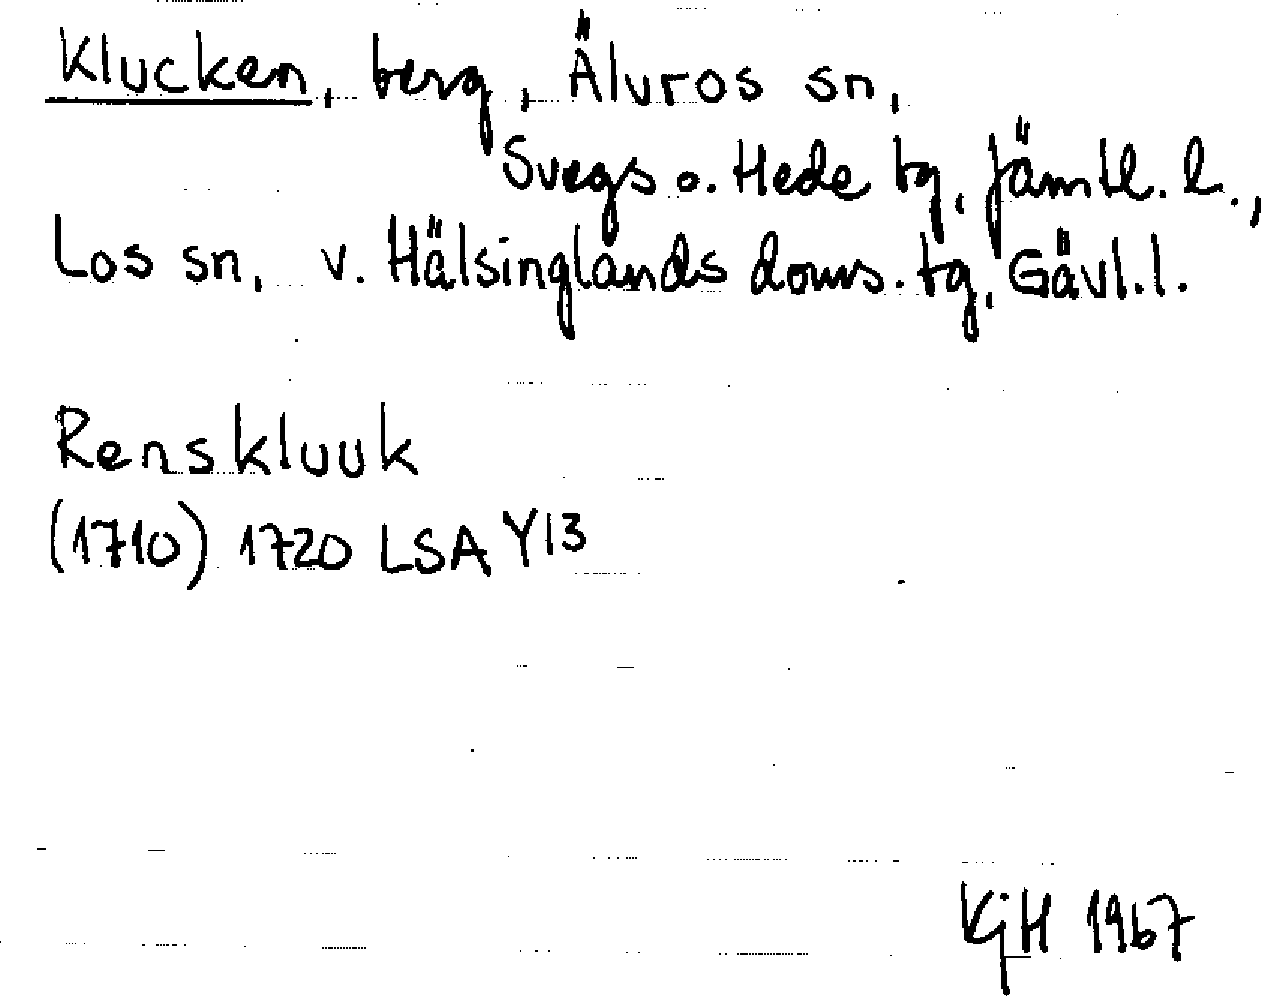 Klucken, berg, Älvros sn,
Svegs o. Hede tg, Jämtl. l.,
Los sn, v. Hälsinglands doms. tg, Gävl. l.
Renskluuk
(1710) 1720 LSA Y13
KjH 1967